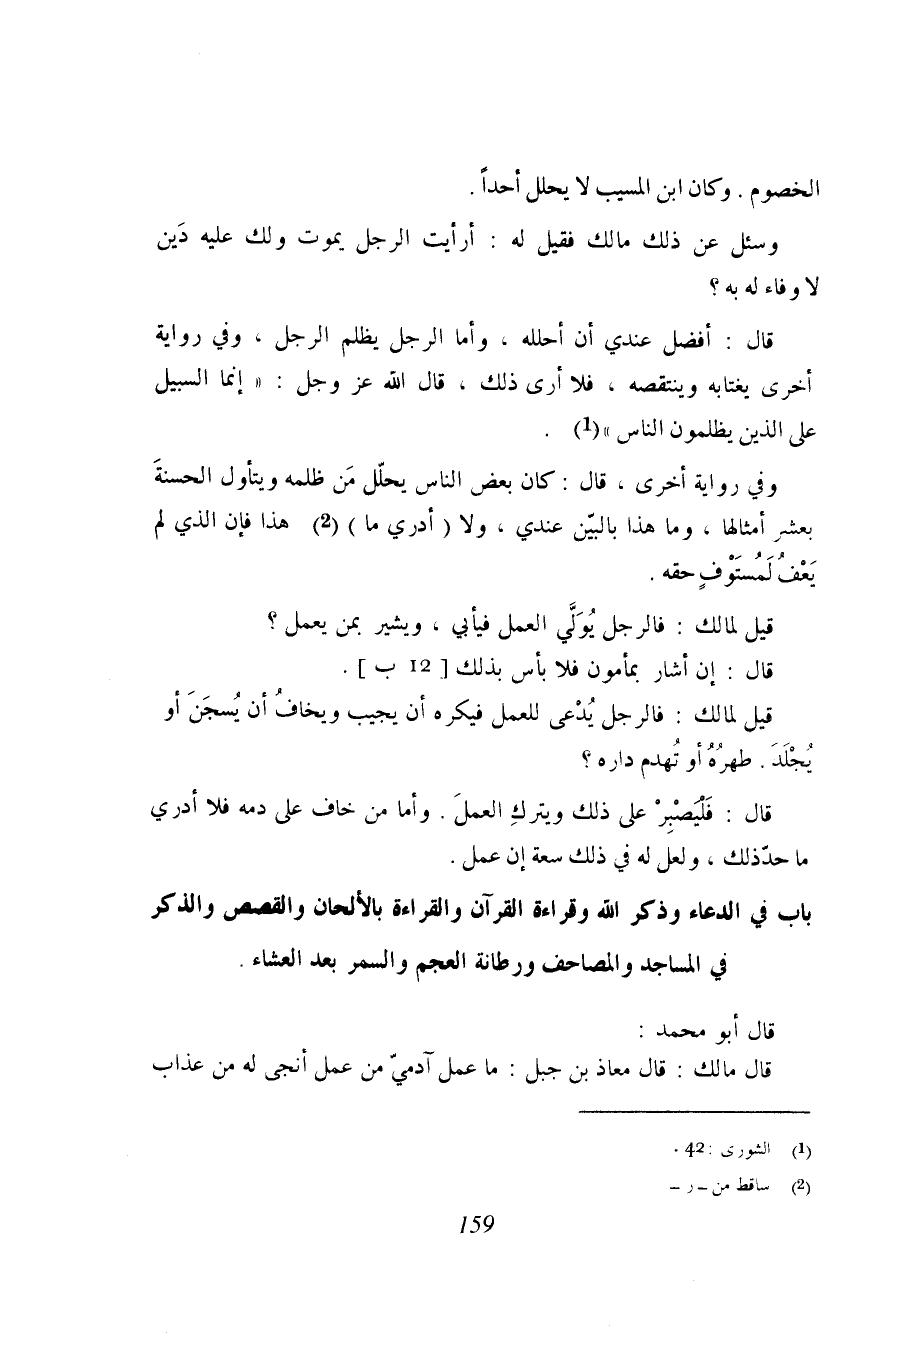 الخصوم . وكان ابن المسيب لا يحلل أحداً .
وسئل عن ذلك مالك فقيل له : أرأيت الرجل يموت ولك عليه دَين
لا وفاء له به ؟
قال : أفضل عندي أن أحلله ، وأما الرجل يظلم الرجل ، وفي رواية
أخرى يغتابه وينتقصه ، فلا أرى ذلك ، قال الله عز وجل : « إنما السبيل
على الذين يظلمون الناس »(1) .
وفي رواية أخرى ، قال : كان بعض الناس يحلّل مَن ظلمه ويتأول الحسنةَ
بعشر أمثالها ، وما هذا بالبيّن عندي ، ولا ( أدري ما ) (2) هذا فإن الذي لم
يَعْفُ لَمُسْتَوْفٍ حقه .
قيل لمالك : فالرجل يُوَلَّي العمل فيأبي ، ويشير بمن يعمل ؟
قال : إن أشار بمأمون فلا بأس بذلك [ 12 ب ] .
قيل لمالك : فالرجل يُدْعى للعمل فيكره أن يجيب ويخافُ أن يُسجَنَ أو
يُجْلَدَ . ظهرُهُ أو تُهدم داره ؟
قال : فَلْيَصْبِرْ على ذلك ويتركِ العملَ . وأما من خاف على دمه فلا أدري
ما حدّذلك ، ولعل له في ذلك سعة إن عمل .
باب في الدعاء وذكر الله وقراءة القرآن والقراءة بالألحان والقصص والذكر
في المساجد والمصاحف ورطانة العجم والسمر بعد العشاء .
قال أبو محمد :
قال مالك : قال معاذ بن جبل : ما عمل آدميّ من عمل أنجى له من عذاب
(1) الشورى : 42 .
(2) ساقط من – ر –
159